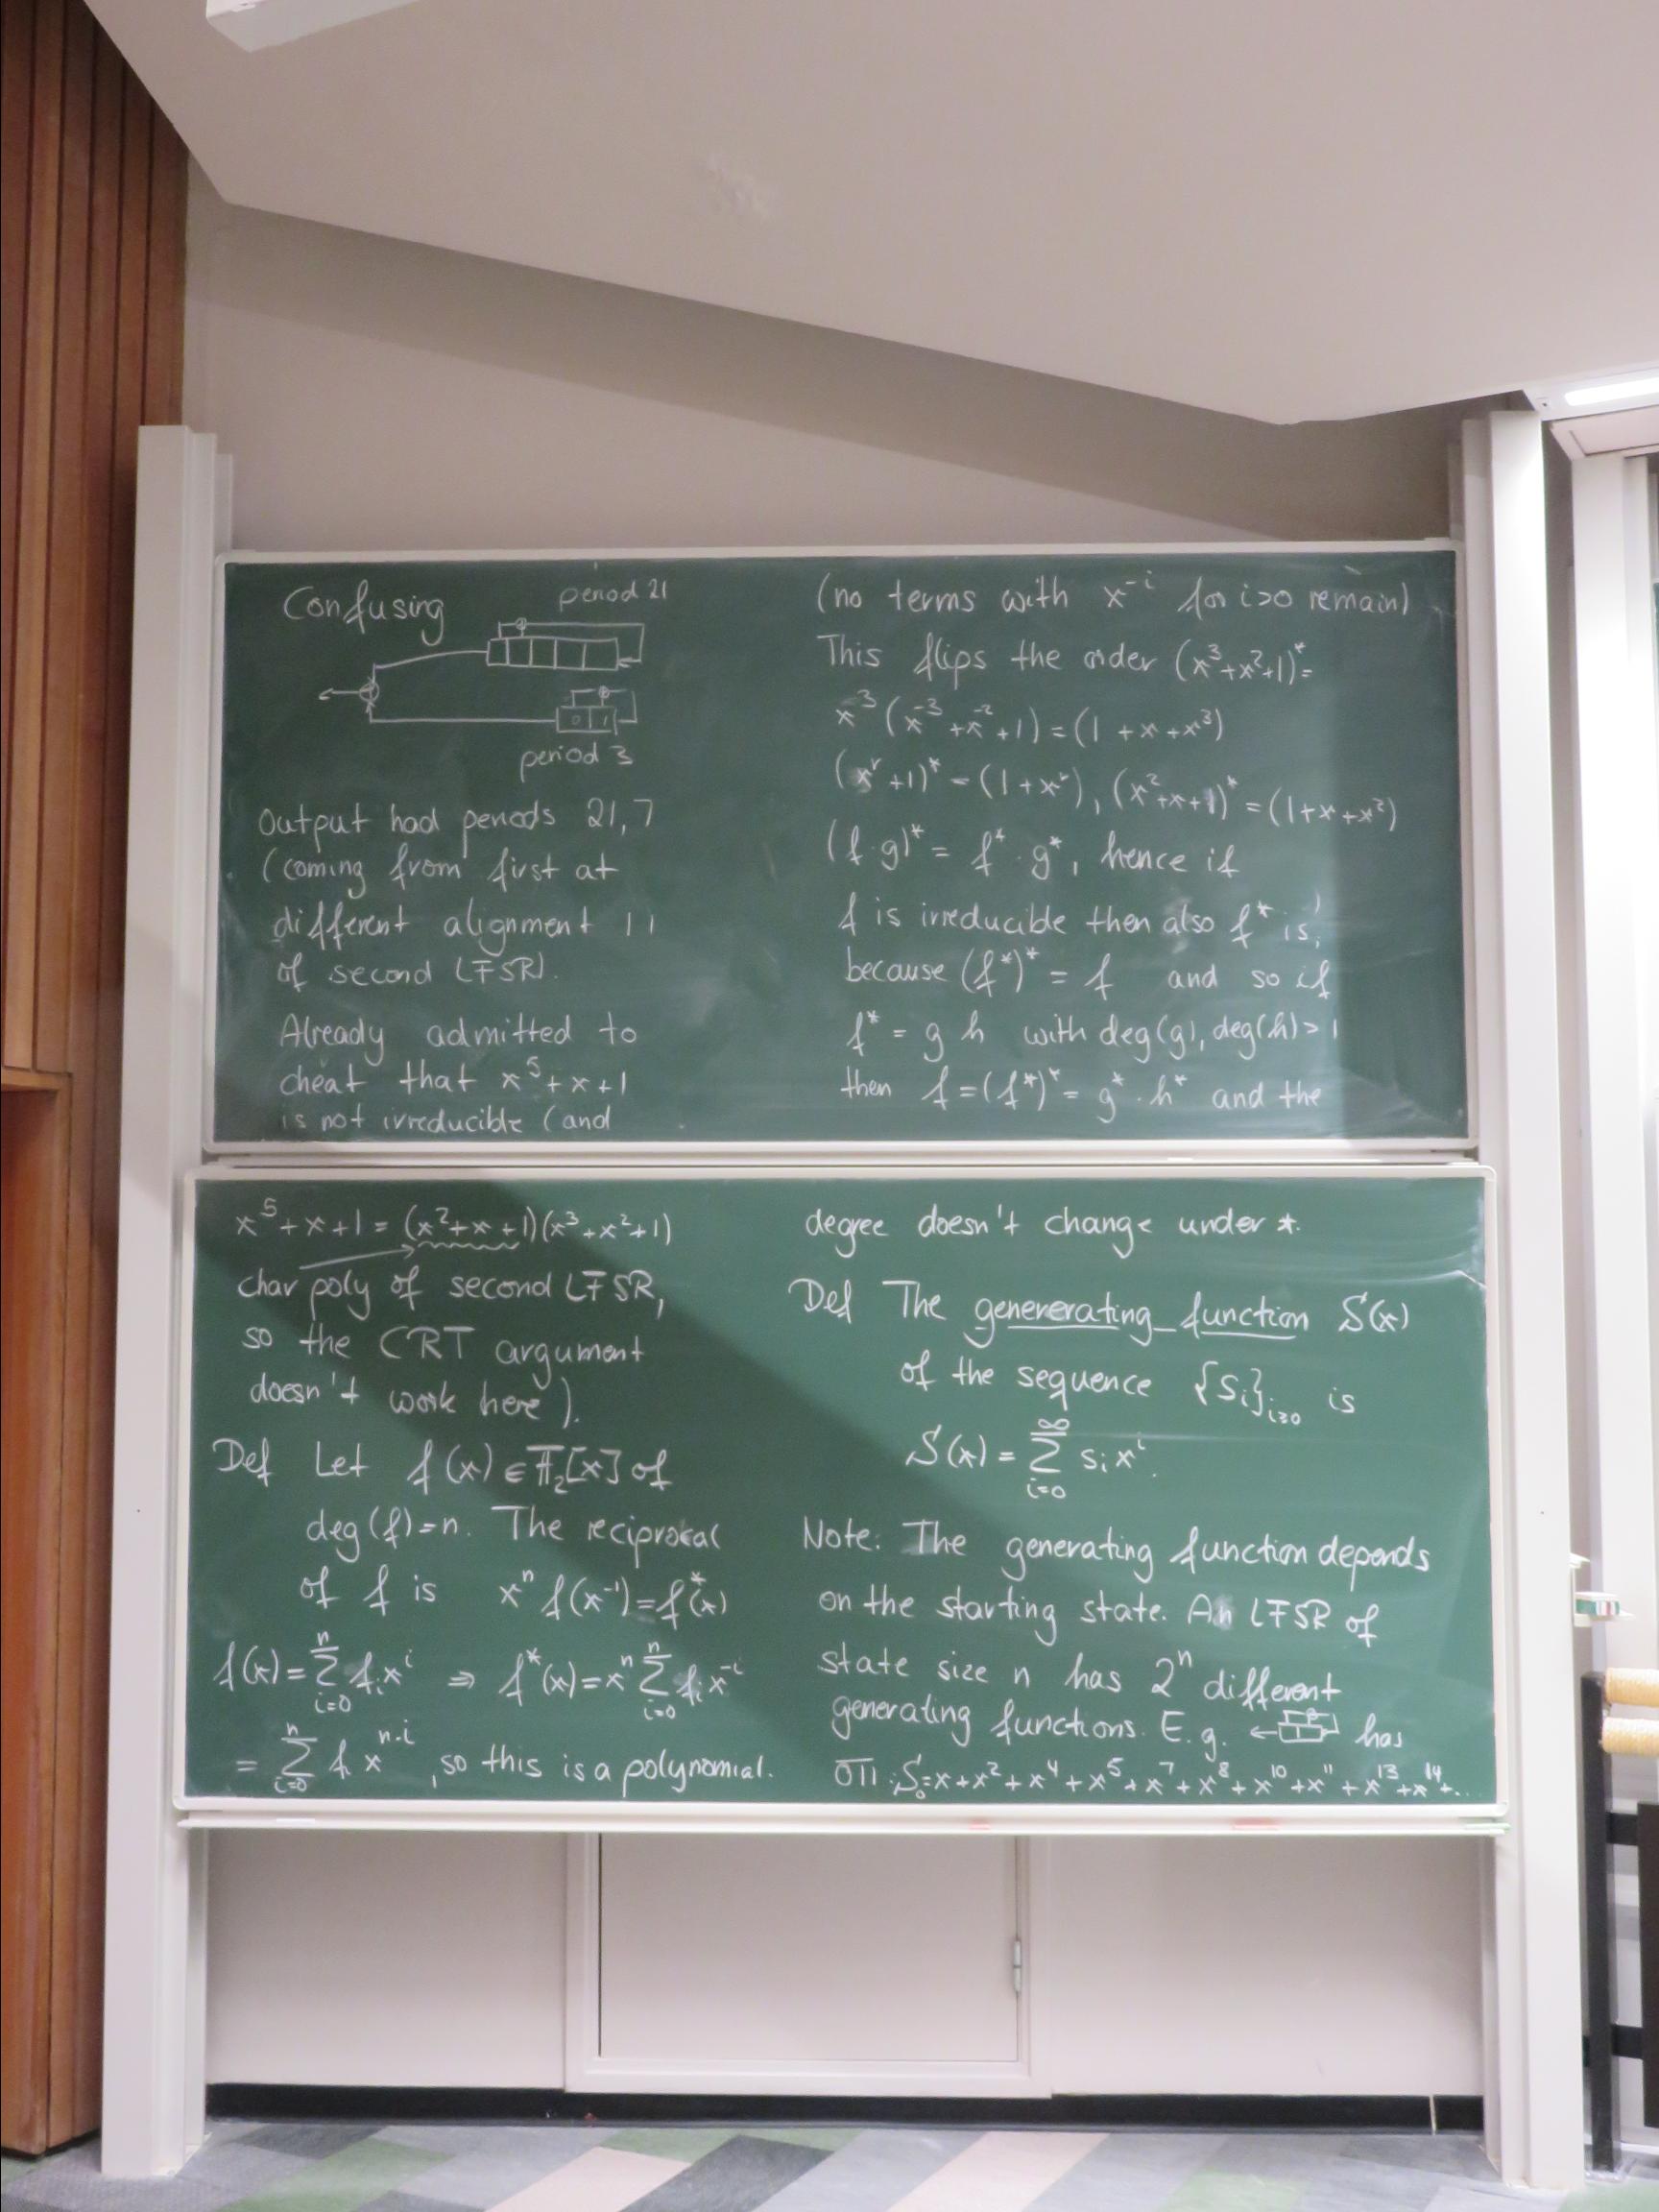 Confusing
period 21
0 1
period 3
Output had periods 21, 7
(coming from first at
different alignment
of second LFSR).
Already admitted to
cheat that x^5 + x + 1
is not irreducible (and
x^5 + x + 1 = (x^2 + x + 1)(x^3 + x^2 + 1)
char poly of second LFSR,
so the CRT argument
doesn't work here).
Def Let f(x) ∈ F_2[x] of
deg(f) = n. The reciprocal
of f is x^n f(x^{-1}) = f^*(x)
f(x) = Σ_{i=0}^{n} f_i x^i ⇒ f^*(x) = x^n Σ_{i=0}^{n} f_i x^{-i}
= Σ_{i=0}^{n} f_i x^{n-i}, so this is a polynomial.
(no terms with x^{-i} for i>0 remain)
This flips the order (x^3 + x^2 + 1)^* =
x^3 (x^{-3} + x^{-2} + 1) = (1 + x + x^3)
(x^r + 1)^* = (1 + x^r), (x^2 + x + 1)^* = (1 + x + x^2)
(f · g)^* = f^* · g^*, hence if
f is irreducible then also f^* is,
because (f^*)^* = f and so if
f^* = g h with deg(g), deg(h) > 1
then f = (f^*)^* = g^* · h^* and the
degree doesn't change under *.
Def The genererating function S(x)
of the sequence {s_i}_{i≥0} is
S(x) = Σ_{i=0}^{∞} s_i x^i.
Note: The generating function depends
on the starting state. An LFSR of
state size n has 2^n different
generating functions. E.g. ← has
011 : S_0 = x + x^2 + x^4 + x^5 + x^7 + x^8 + x^10 + x^11 + x^13 + x^14 + ..